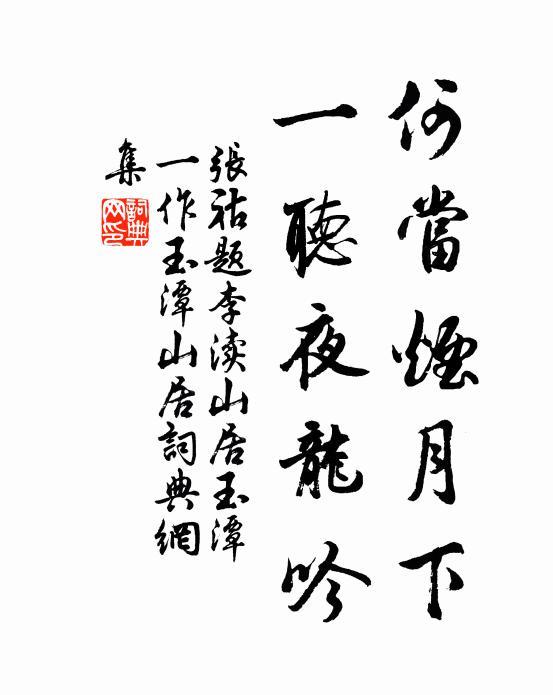 何當煙月下
一聽夜龍吟
張祜題李渎山居玉潭
一作玉潭山居詞典網
集
詞典网印